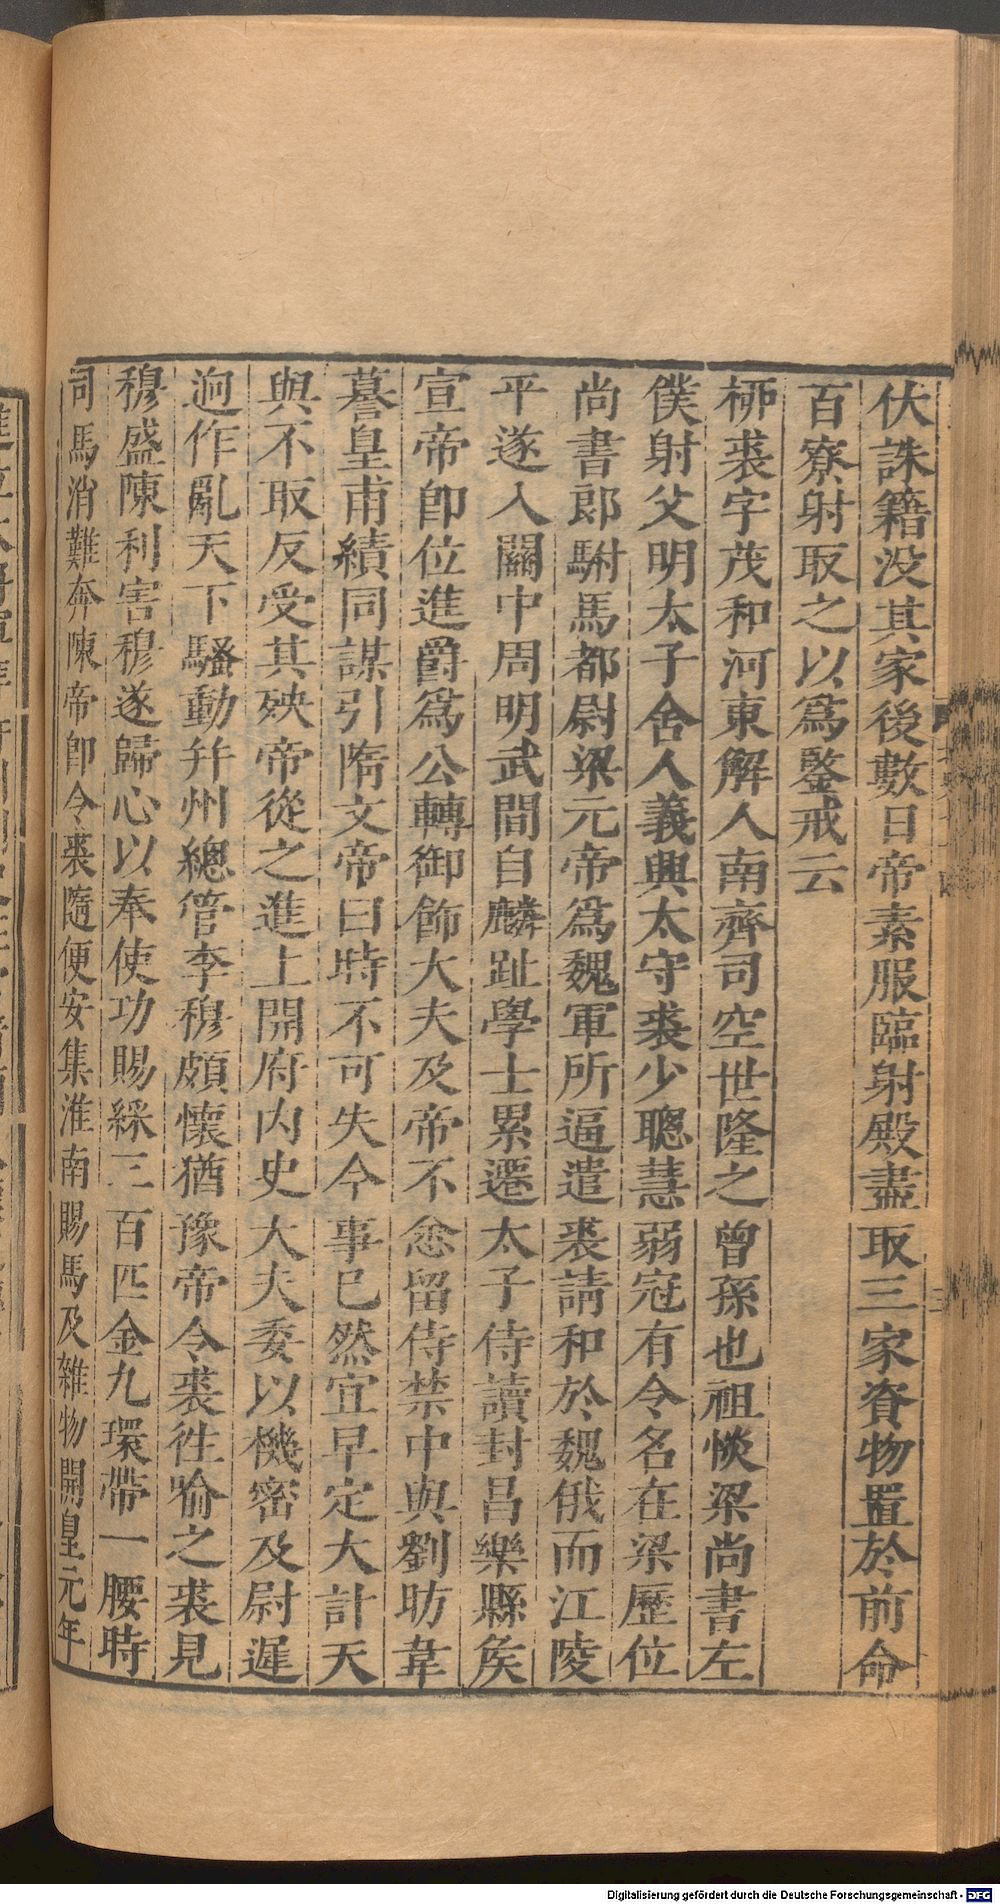 伏誅籍没其家後數日帝素服臨射殿盡取三家資物置於前命
百寮射取之以爲鑒戒云
栁裘字茂和河東解人南齊司空世隆之曾孫也祖惔梁尚書左
僕射父明太子舍人義興太守裘少聰慧弱冠有令名在梁歷位
尚書郎駙馬都尉梁元帝爲魏軍所逼遣裘請和於魏俄而江陵
平遂入關中周明武間自麟趾學士累遷太子侍讀封昌樂縣矦
宣帝卽位進爵爲公轉御飾大夫及帝不悆留侍禁中與劉昉韋
謩皇甫績同謀引隋文帝曰時不可失今事已然宜早定大計天
與不取反受其殃帝從之進上開府内史大夫委以機密及尉遲
逈作亂天下騷動幷州總管李穆頗懷猶豫帝令裘徃喻之裘見
穆盛陳利害穆遂歸心以奉使功賜綵三百匹金九環帶一腰時
司馬消難奔陳帝卽令裘隨便安集淮南賜馬及雜物開皇元年
Digitalisierung gefördert durch die Deutsche Forschungsgemeinschaft - DFG